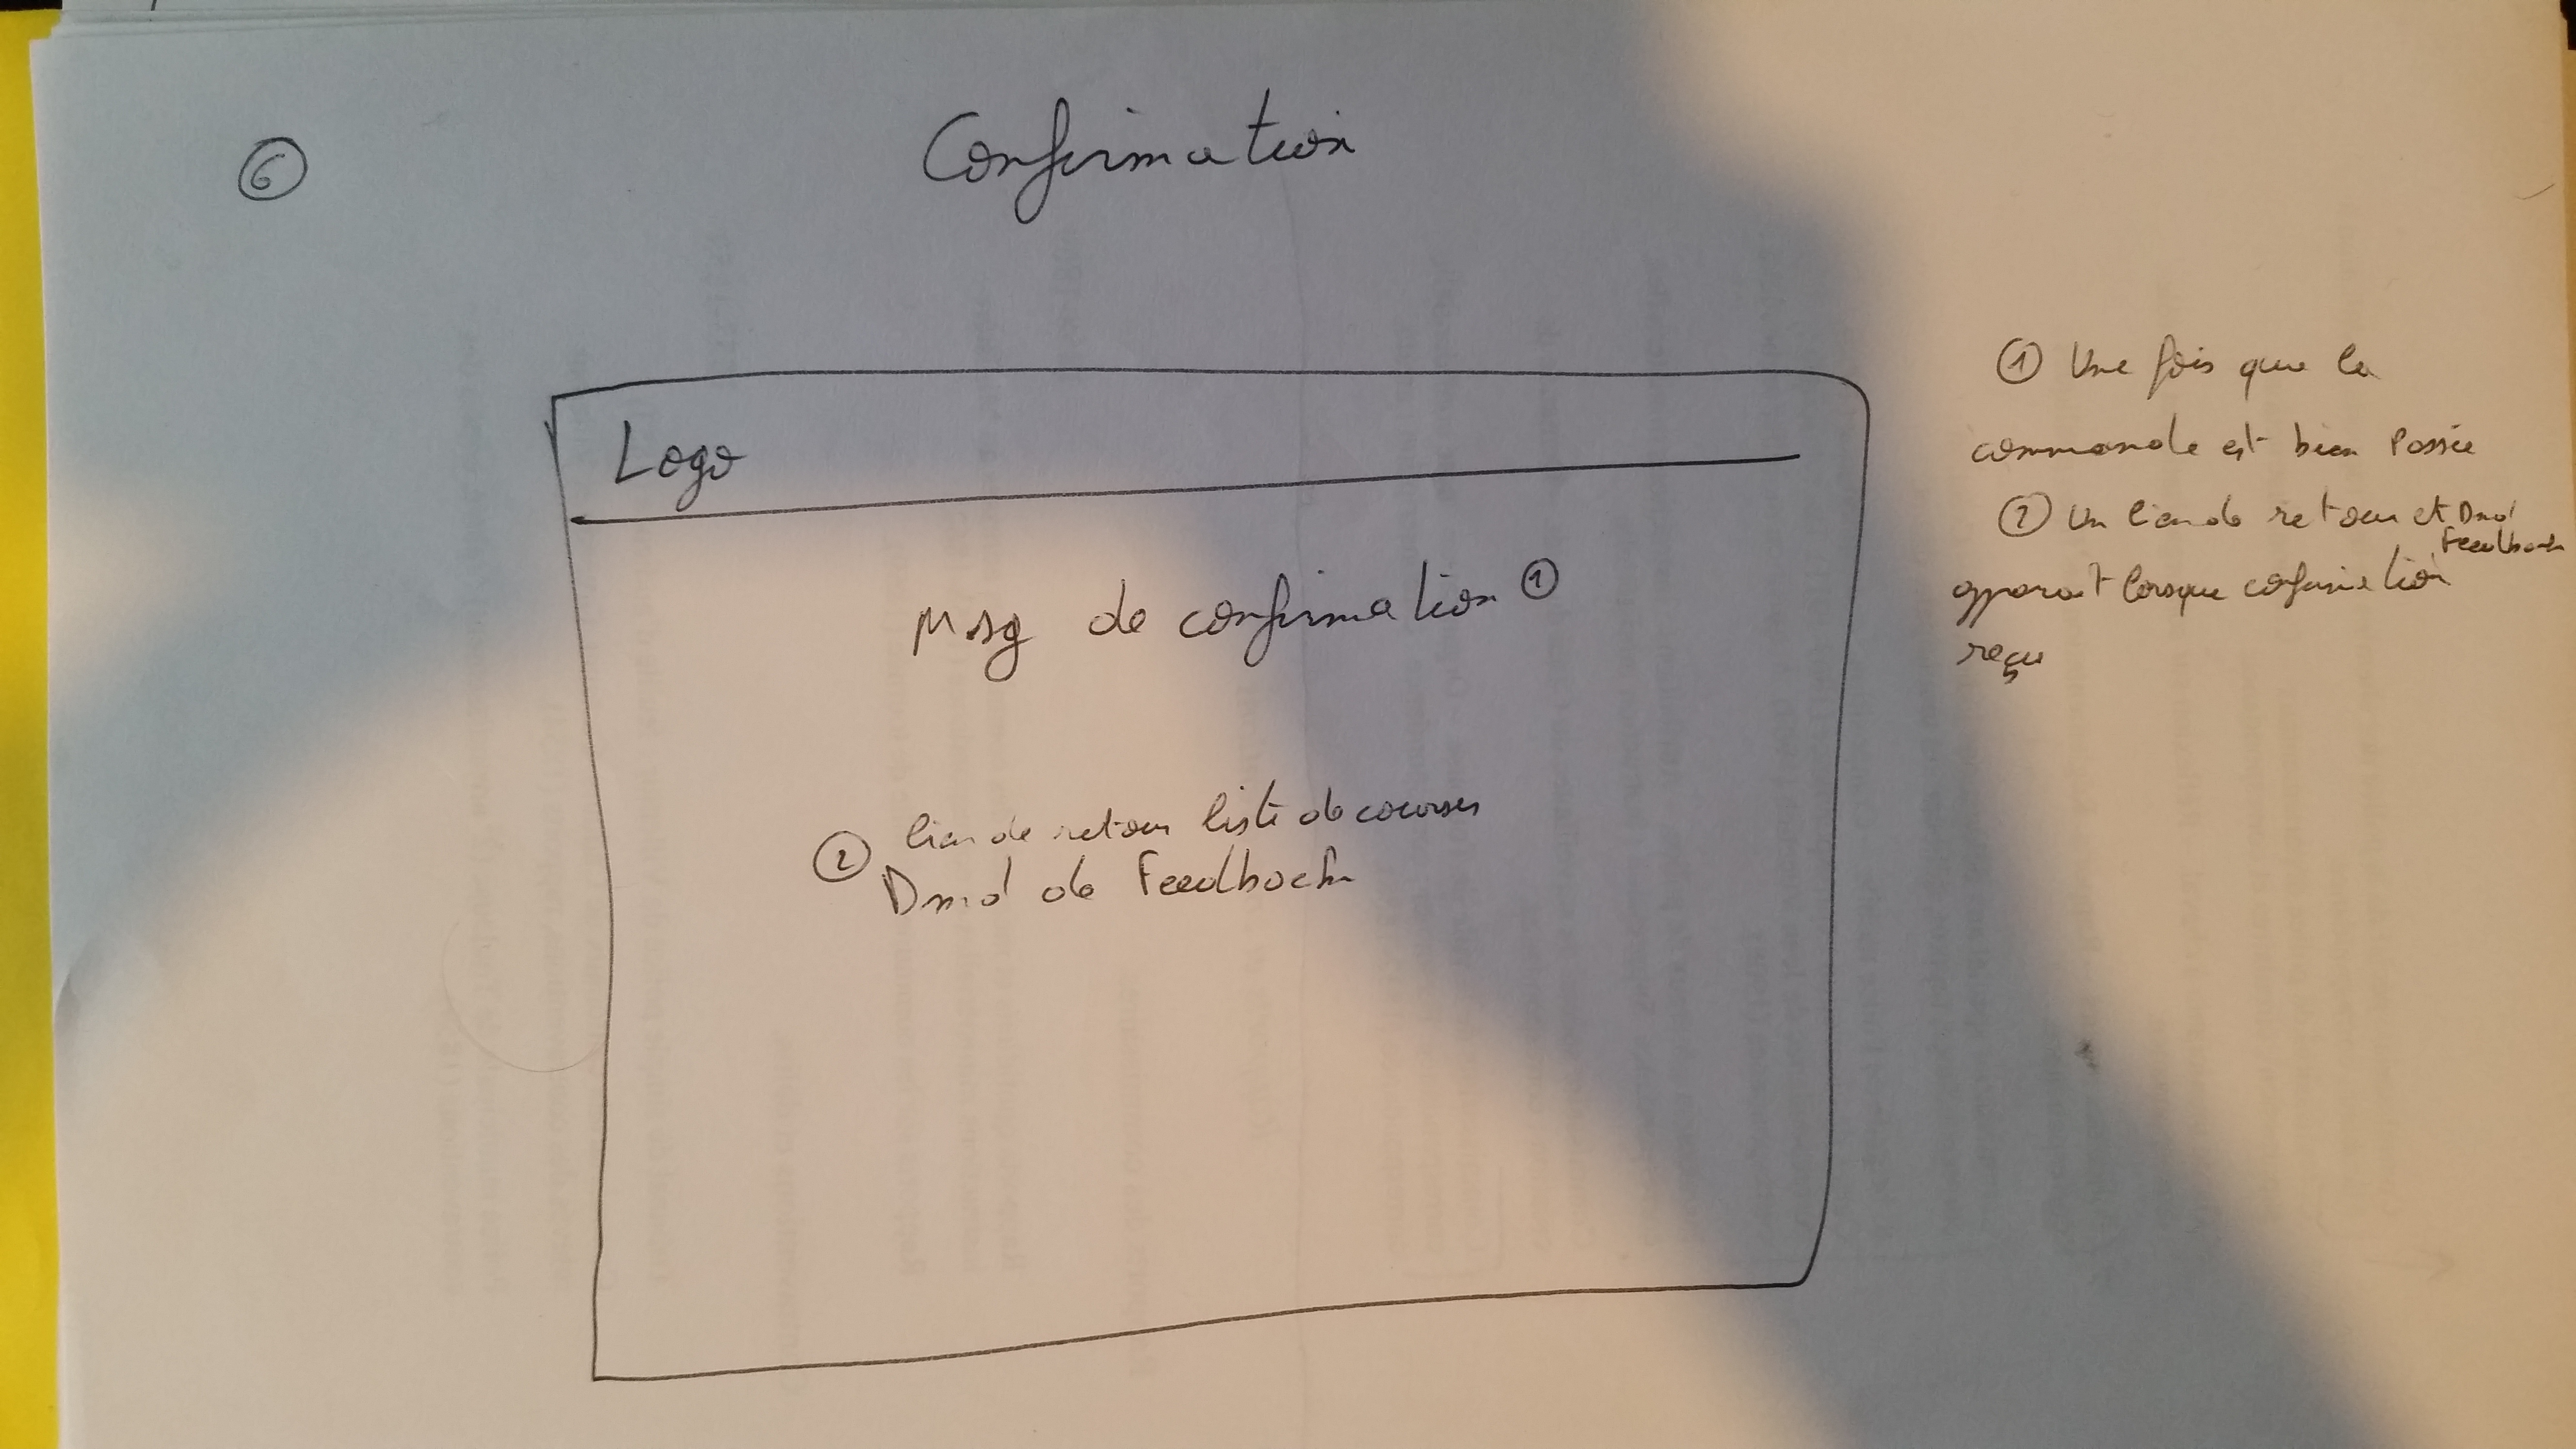 6
Confirmation
Logo
Msg de confirmation 1
2 lien de retour liste de courses
Dmd de Feedback
1 Une fois que la
commande est bien Passée
2 Un lien de retour et Dmd
Feedback
apparait lorsque confirmation
reçu